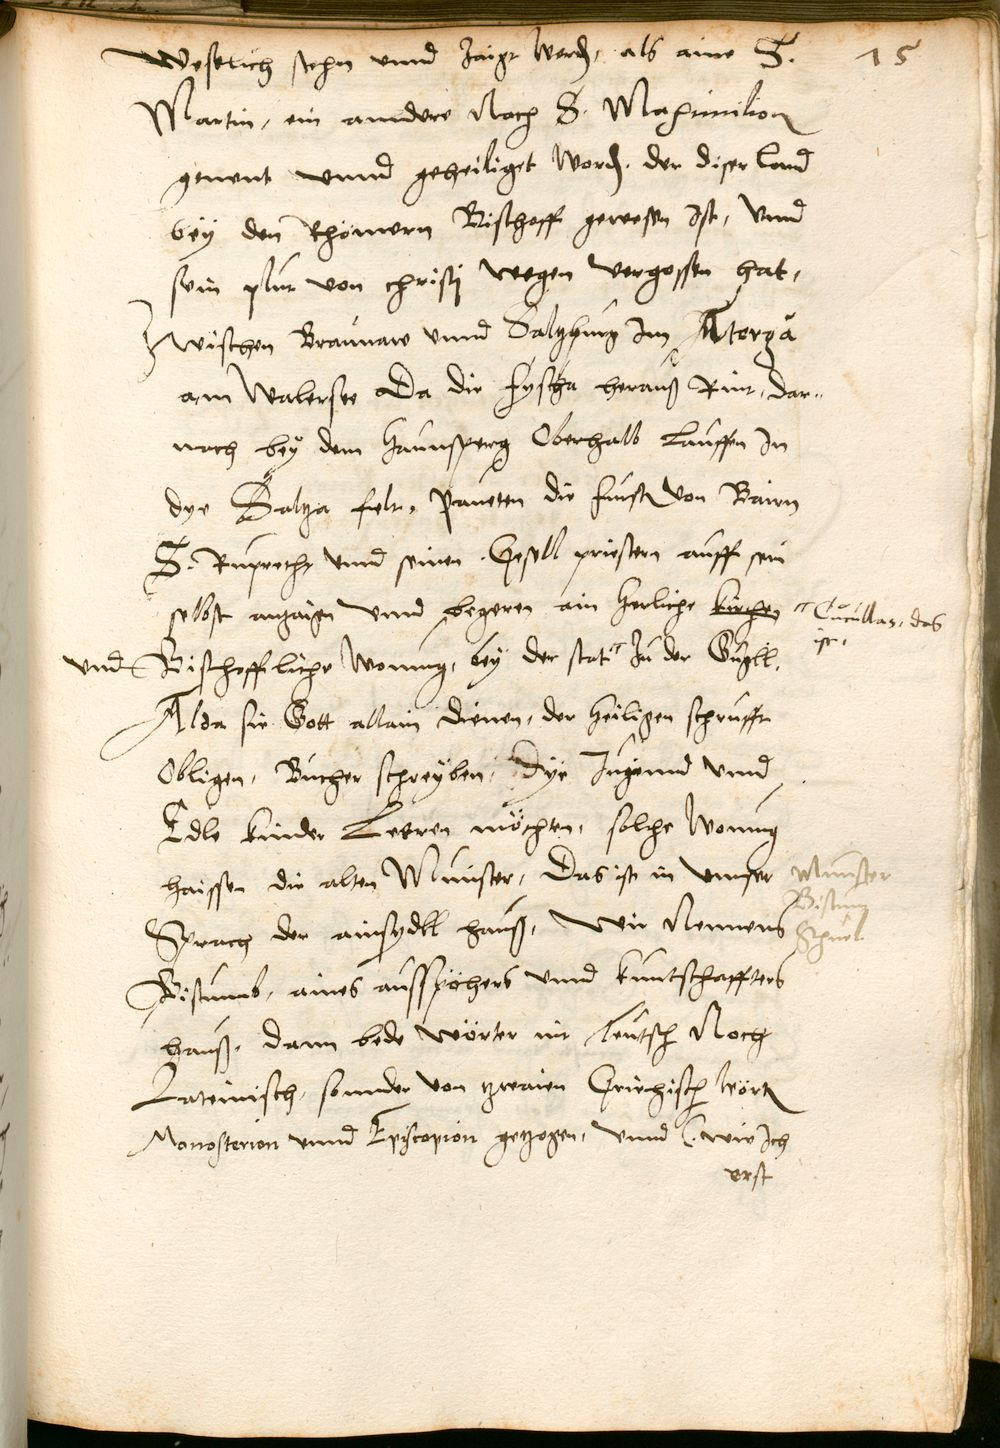 15
Westlich stehn unnd zaigt werden, als aine S.
Martin, ein anndere Nach S. Maximilion
genent unnd geheiliget worden. der diser Land
bey den Rhömern Bischoff gewesen ist, Unnd
sein pluet von christi wegen vergossen hat,
Zwischen Braunaw unnd Saltzburg Im Atergä
am Walersee Da die Fyscha herauß Rint, dar„
nach bey dem Haunsperg Oberhalb Lauffen In
dye Saltza felt, Paueten die Furstn von Bairn
S. Ruprecht unnd seinen Gesell priestern auff sein
selbst anzaign unnd begeren ain Herliche kirchen
Cucullas, das
ist,
und Bischoffliche Wonung, bey der stat Zu der Gugll,
Alda sie Gott allain dienen, der Heiligen schrufft
Obligen, Bucher schreyben, Dye Jugennd unnd
Edle kinder Leeren möchten, solche Wonung
haissen die alten Munster, Das ist in unnser
Munster
Sprach der ainsydll hauß, Wir Nennens
Bistum
Schuel
Bistumb, aines ausspöchers unnd kuntschaffters
hauß, dann bede wörter nit Teutsch Noch
Lateinisch, sonnder von tzwaien Griechisch wörtn
Monosterion unnd Episcopion getzogen, unnd (wie Ich
erst